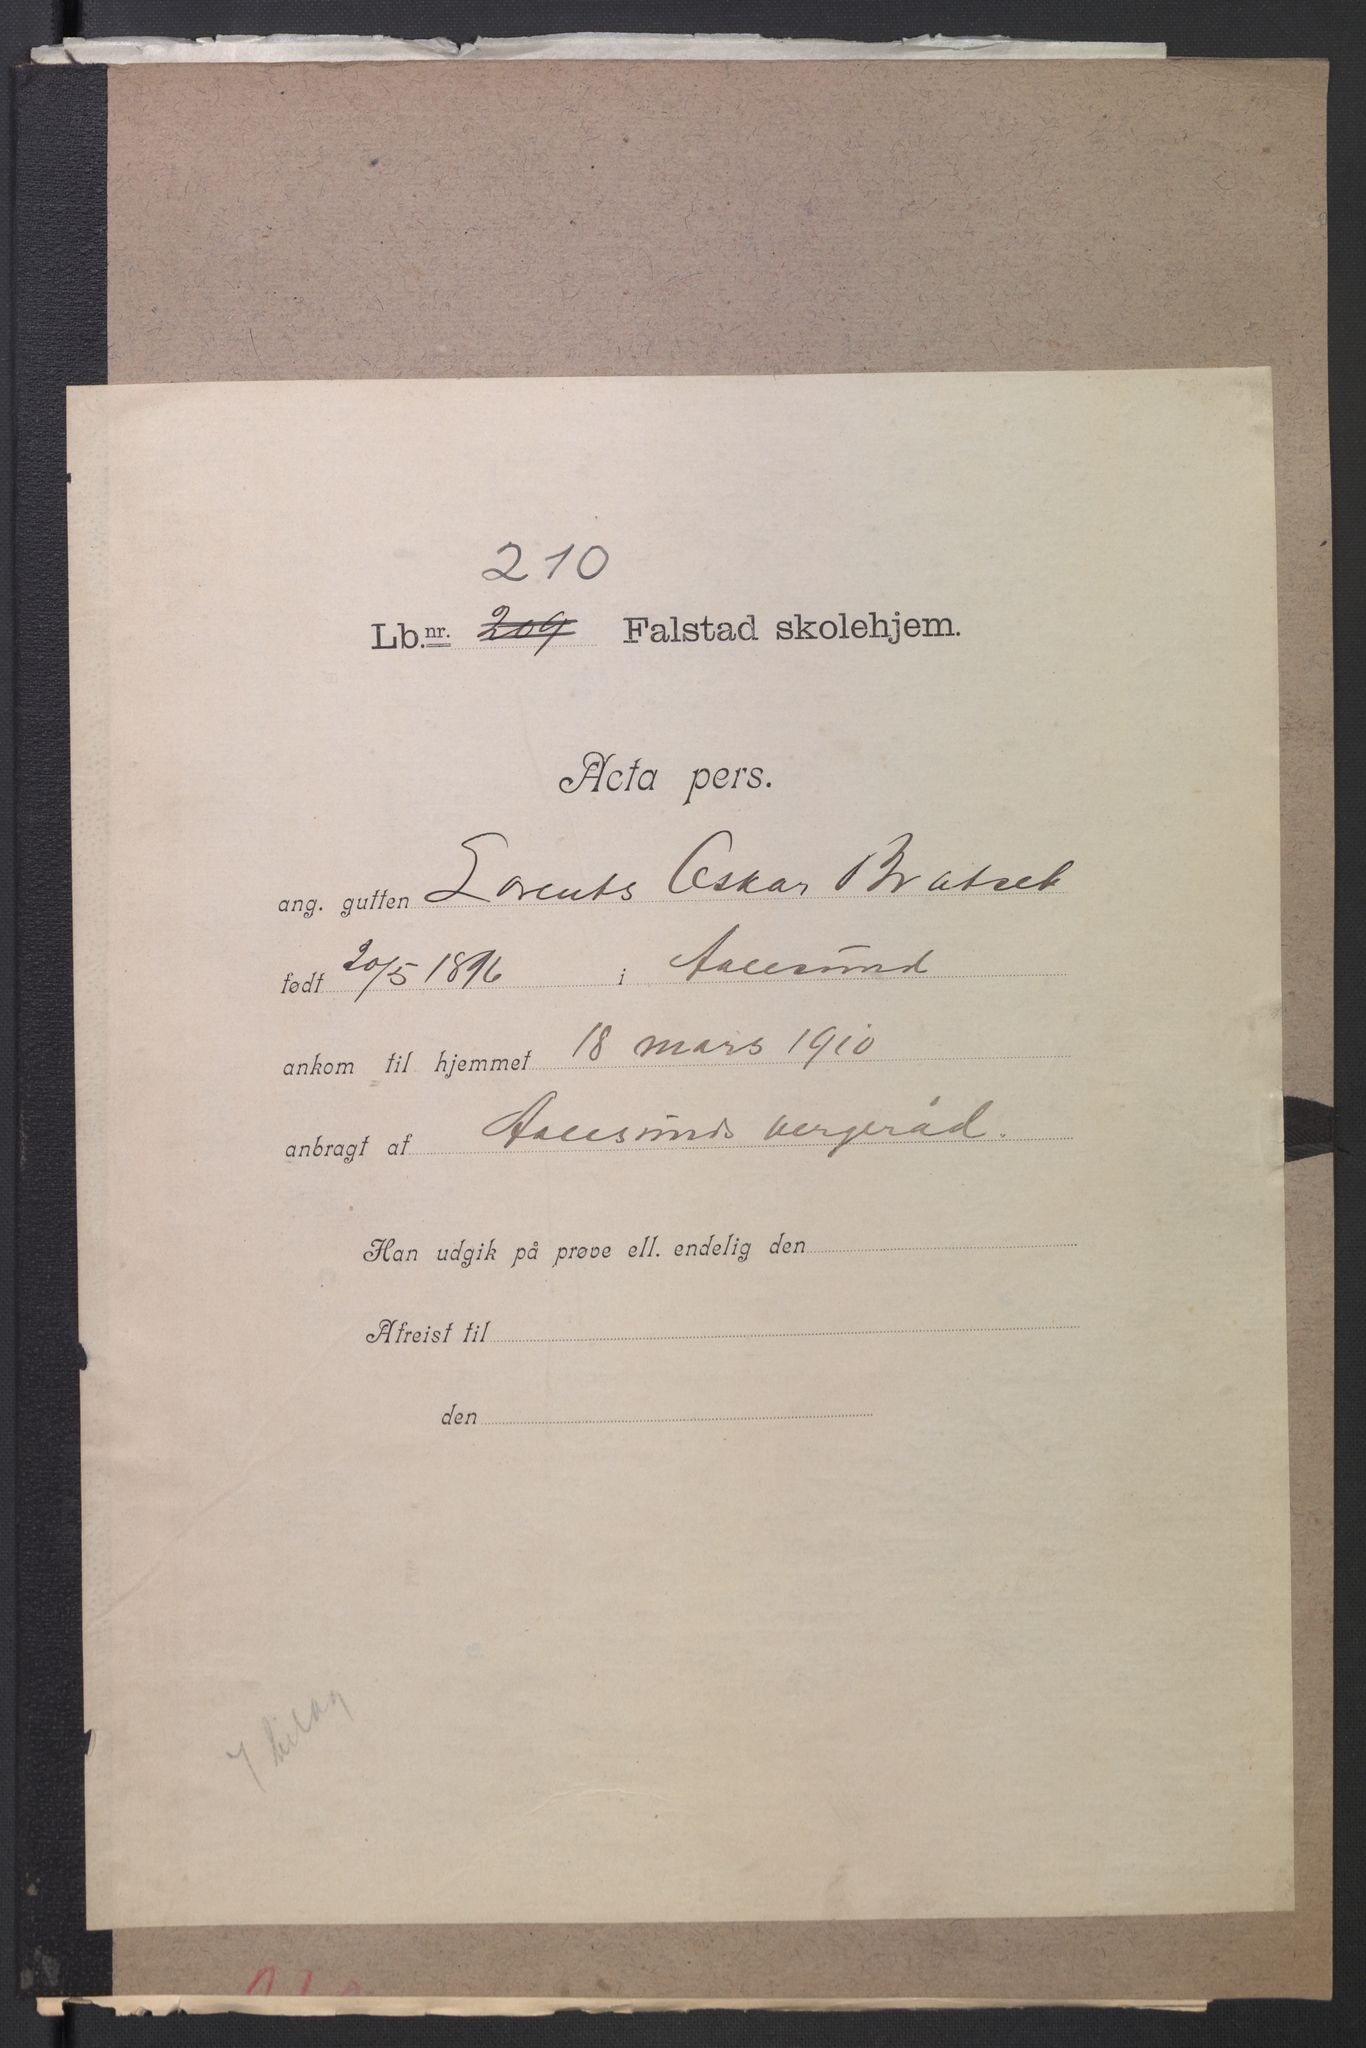 210
Lb.nr. 209 Falstad skolehjem.
Acta pers.
ang. gutten Lorents Oskar Bratset
født 20/5 1896 i Aalesund
ankom til hjemmet 18 mars 1910
anbragt af Aalesunds vergeråd.
Han udgik på prøve ell. endelig den
Afreist til
den
7 bilag